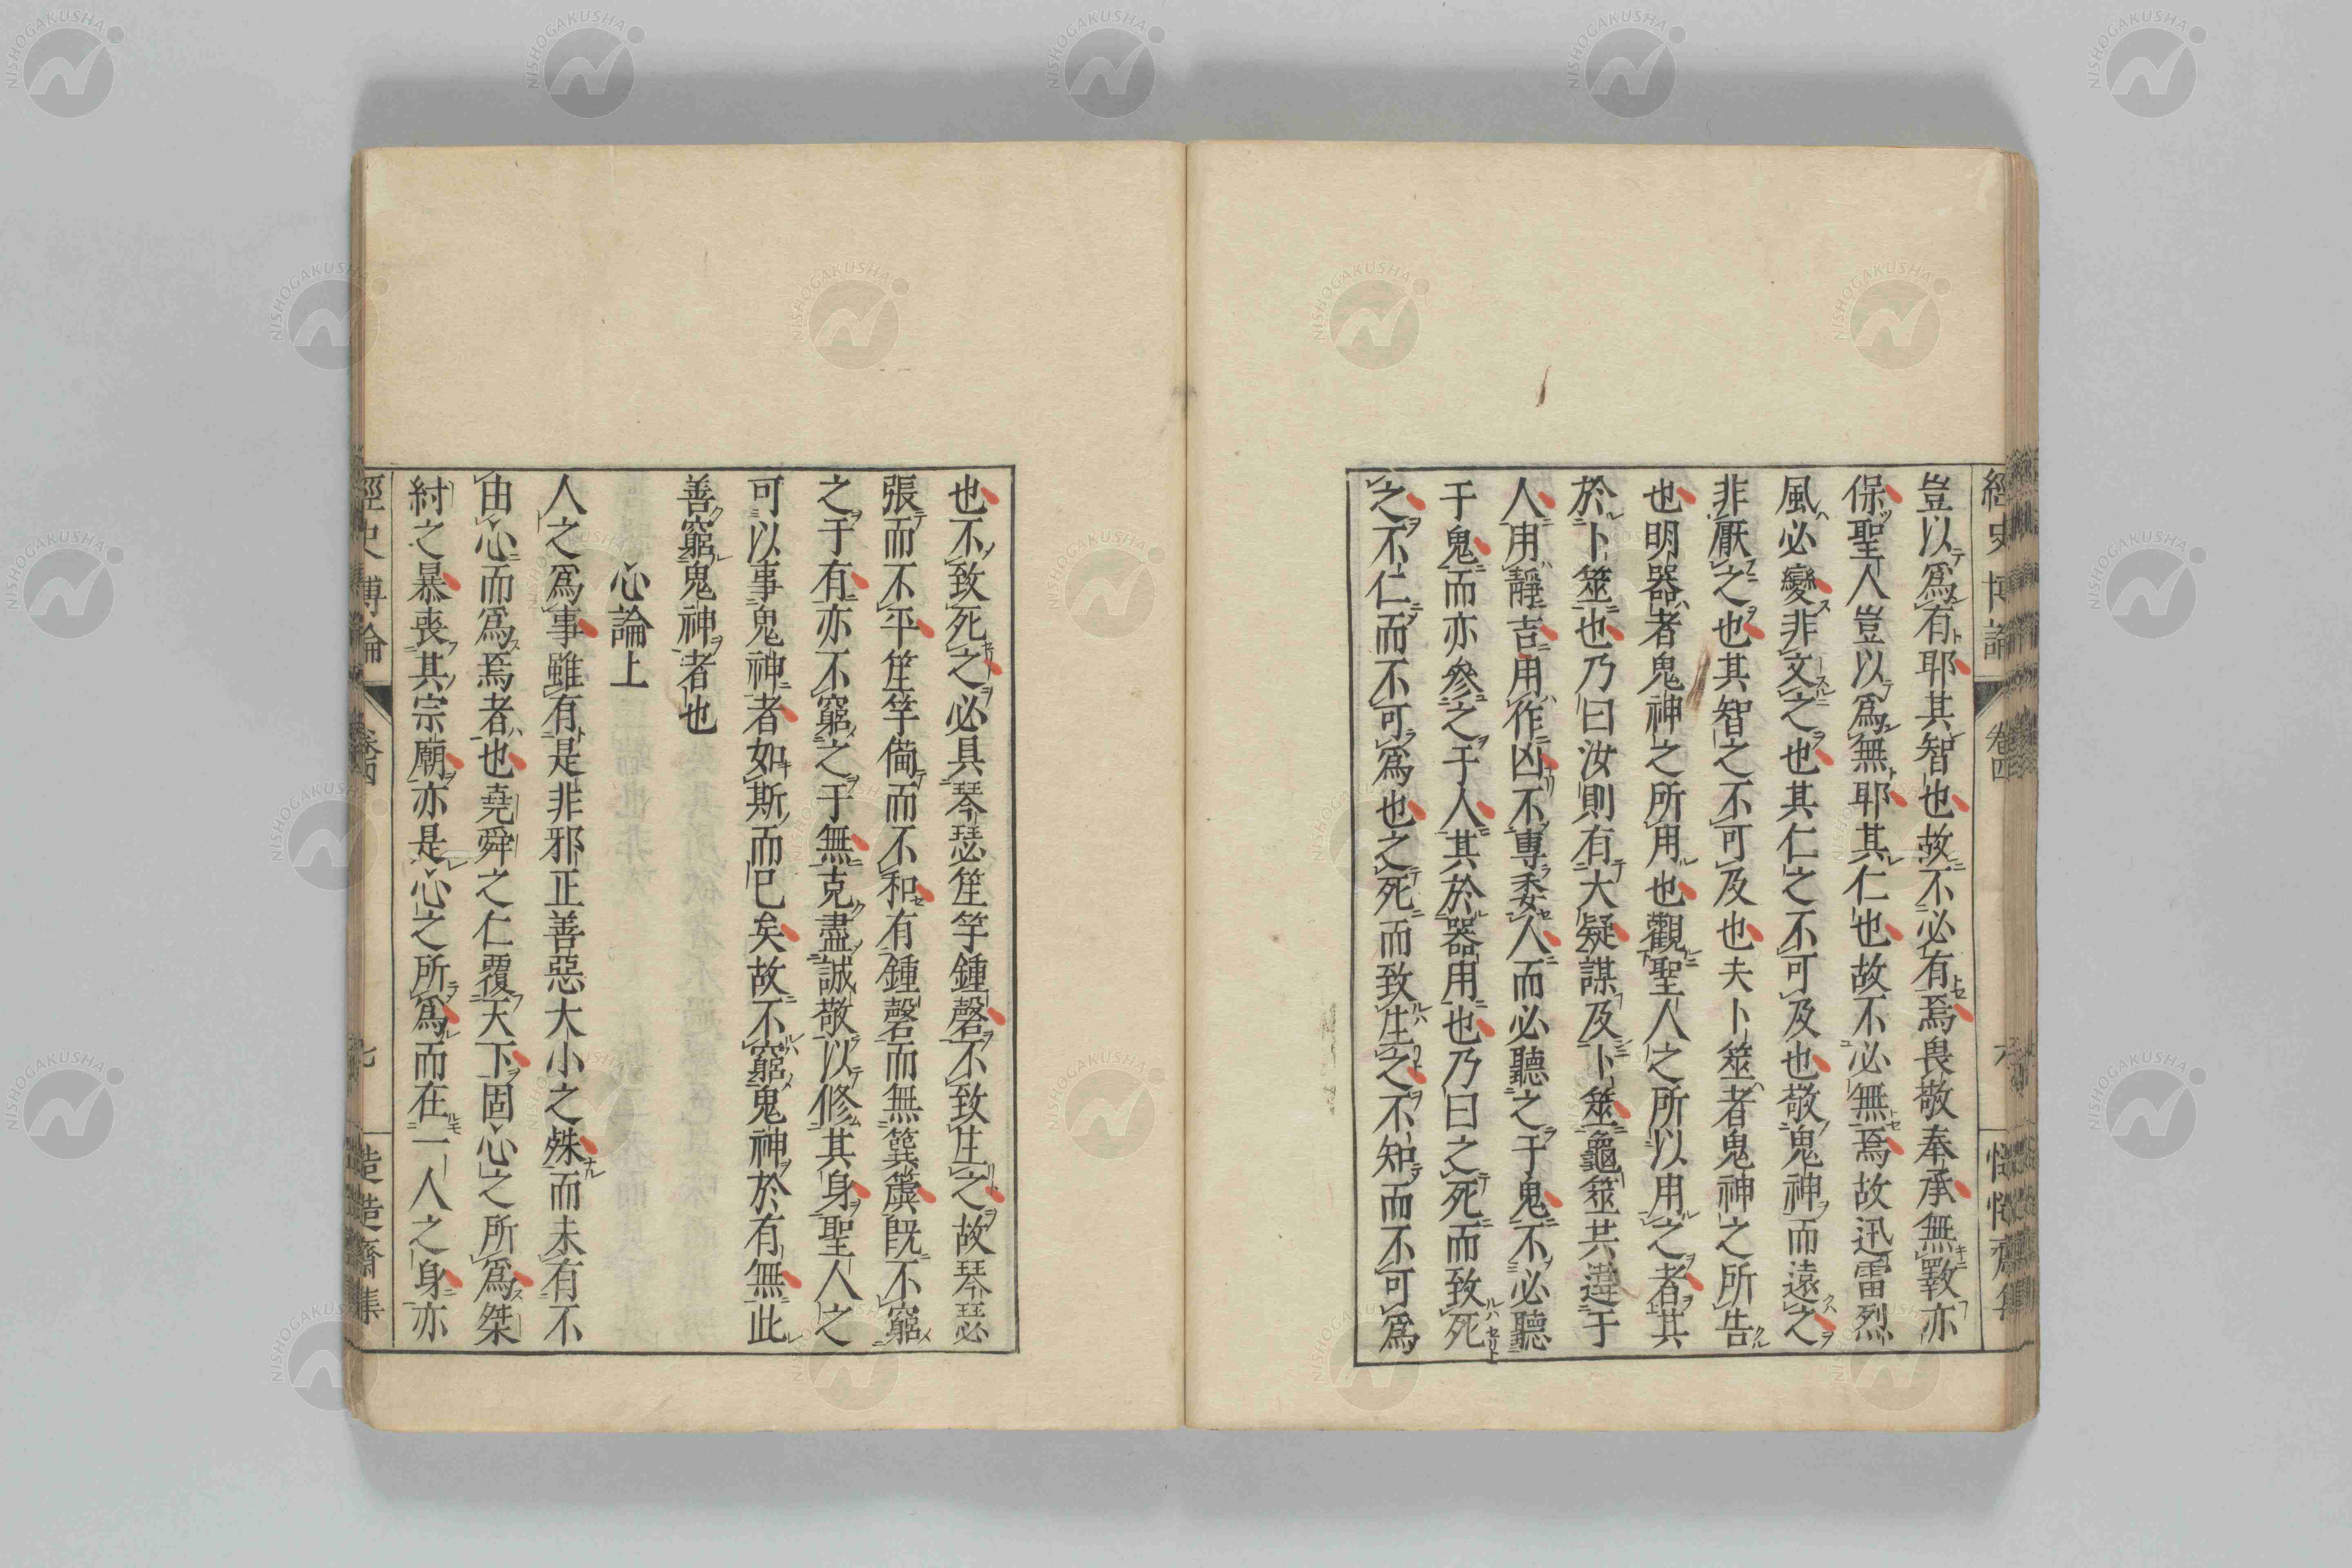 經史博論
卷四
六
豈以爲有耶其智也故不必有焉畏敬奉承無斁亦
保聖人豈以爲無耶其仁也故不必無焉故迅雷烈
風必變非文之也其仁之不可及也敬鬼神而遠之
非厭之也其智之不可及也夫卜筮者鬼神之所告
也明器者鬼神之所用也觀聖人之所以用之者其
於卜筮也乃曰汝則有大疑謀及卜筮龜筮共違于
人用靜吉用作凶不專委人而必聽之于鬼不必聽
于鬼而亦參之于人其於器用也乃曰之死而致死
之不仁而不可爲也之死而致生之不知而不可爲
也不致死之必具琴瑟笙竽鍾磬不致生之故琴瑟
張而不平笙竽備而不和有鍾磬而無簨簴既不窮
之于有亦不窮之于無克盡誠敬以修其身聖人之
可以事鬼神者如斯而已矣故不窮鬼神於有無此
善窮鬼神者也
心論上
人之爲事雖有是非邪正善惡大小之殊而未有不
由心而爲焉者也堯舜之仁覆天下固心之所爲桀
紂之暴喪其宗廟亦是心之所爲而在一人之身亦
經史博論
卷四
七
NISHOGAKUSHA